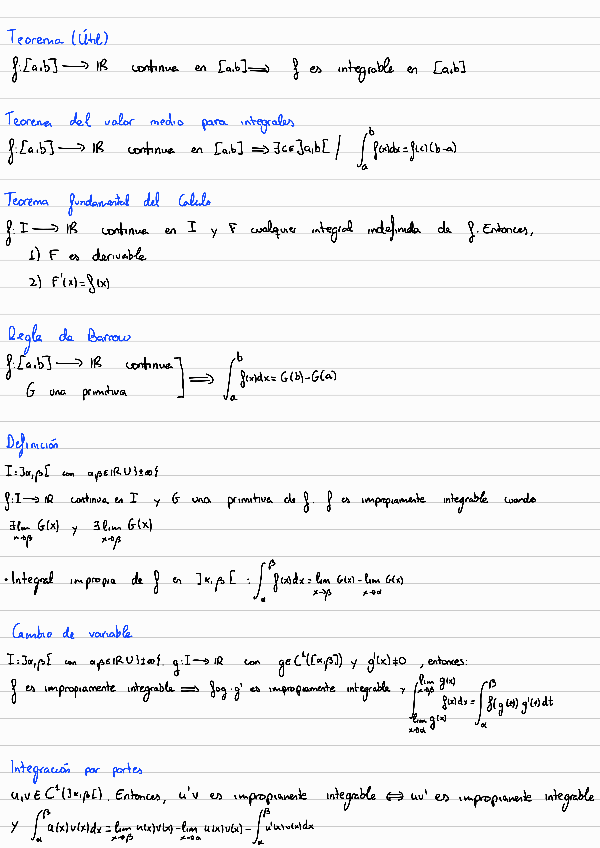 Teorema (Útil)
f:[a,b] → IR continua en [a,b] ⟹ f es integrable en [a,b]
Teorema del valor medio para integrales
f:[a,b] → IR continua en [a,b] ⟹ ∃c∈]a,b[ / ∫_a^b f(x)dx = f(c)(b-a)
Teorema fundamental del Calculo
f: I → IR continua en I y F cualquier integral indefinida de f. Entonces,
1) F es derivable
2) F'(x)=f(x)
Regla de Barrow
f:[a,b] → IR continua
G una primitiva ] ⟹ ∫_a^b f(x)dx = G(b)-G(a)
Definición
I=]α,β[ con α,β∈IR∪{±∞}
f:I → IR continua en I y G una primitiva de f. f es impropiamente integrable cuando
∃lim_{x→β} G(x) y ∃lim_{x→β} G(x)
· Integral impropia de f en ]α,β[ : ∫_α^β f(x)dx = lim_{x→β} G(x) - lim_{x→α} G(x)
Cambio de variable
I=]α,β[ con α,β∈IR∪{±∞}, g:I → IR con g∈C¹([α,β]) y g'(x)≠0 , entonces:
f es impropiamente integrable ⟹ f∘g·g' es impropiamente integrable y ∫_{lim_{x→α} g(x)}^{lim_{x→β} g(x)} f(x)dx = ∫_α^β f(g(t)) g'(t)dt
Integración por partes
u,v∈C¹(]α,β[). Entonces, u'v es impropiamente integrable ⟺ uv' es impropiamente integrable
y ∫_α^β u(x)v(x)dx = lim_{x→β} u(x)v(x) - lim_{x→α} u(x)v(x) - ∫_α^β u'(x)v(x)dx